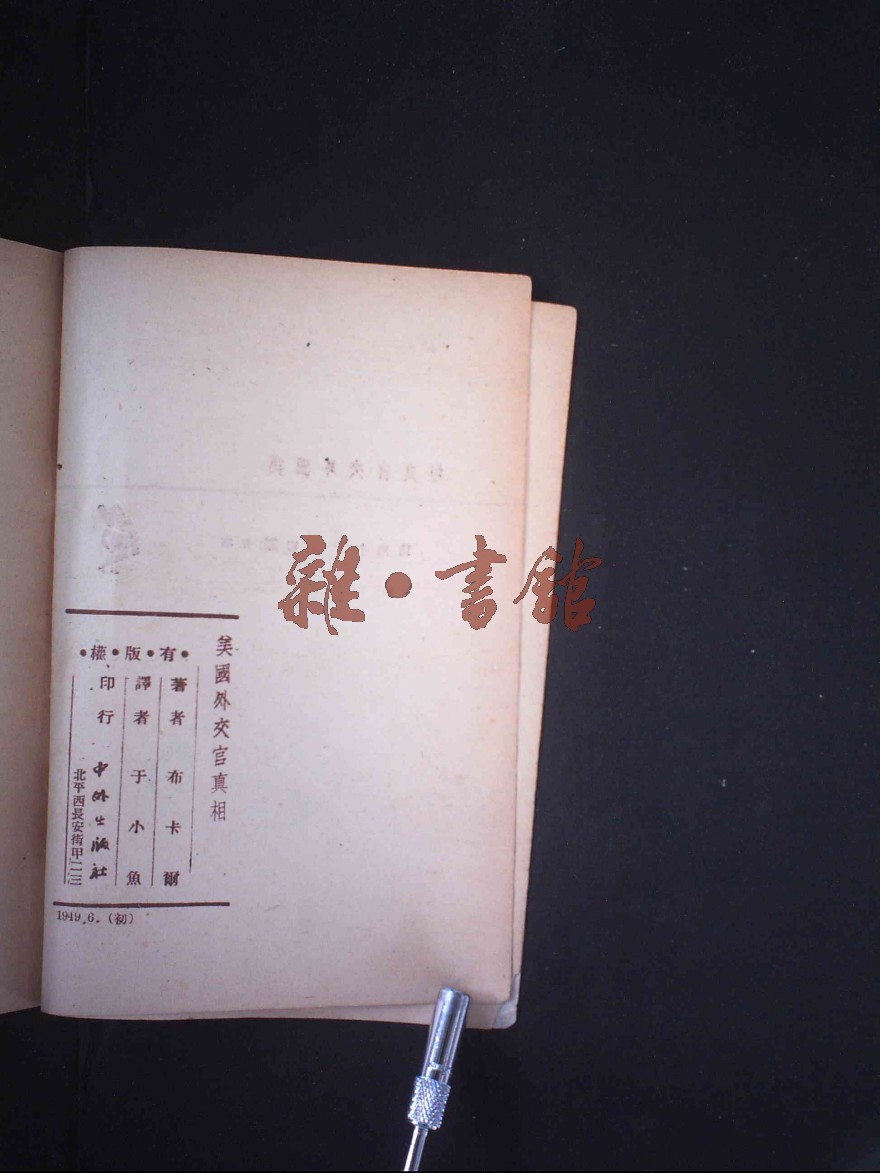 美國外交官真相
有•版•權
著者 布卡爾
譯者 于小魚
印行 中外出版社
北平西長安街甲一三
1949.6.(初)
雜•書館